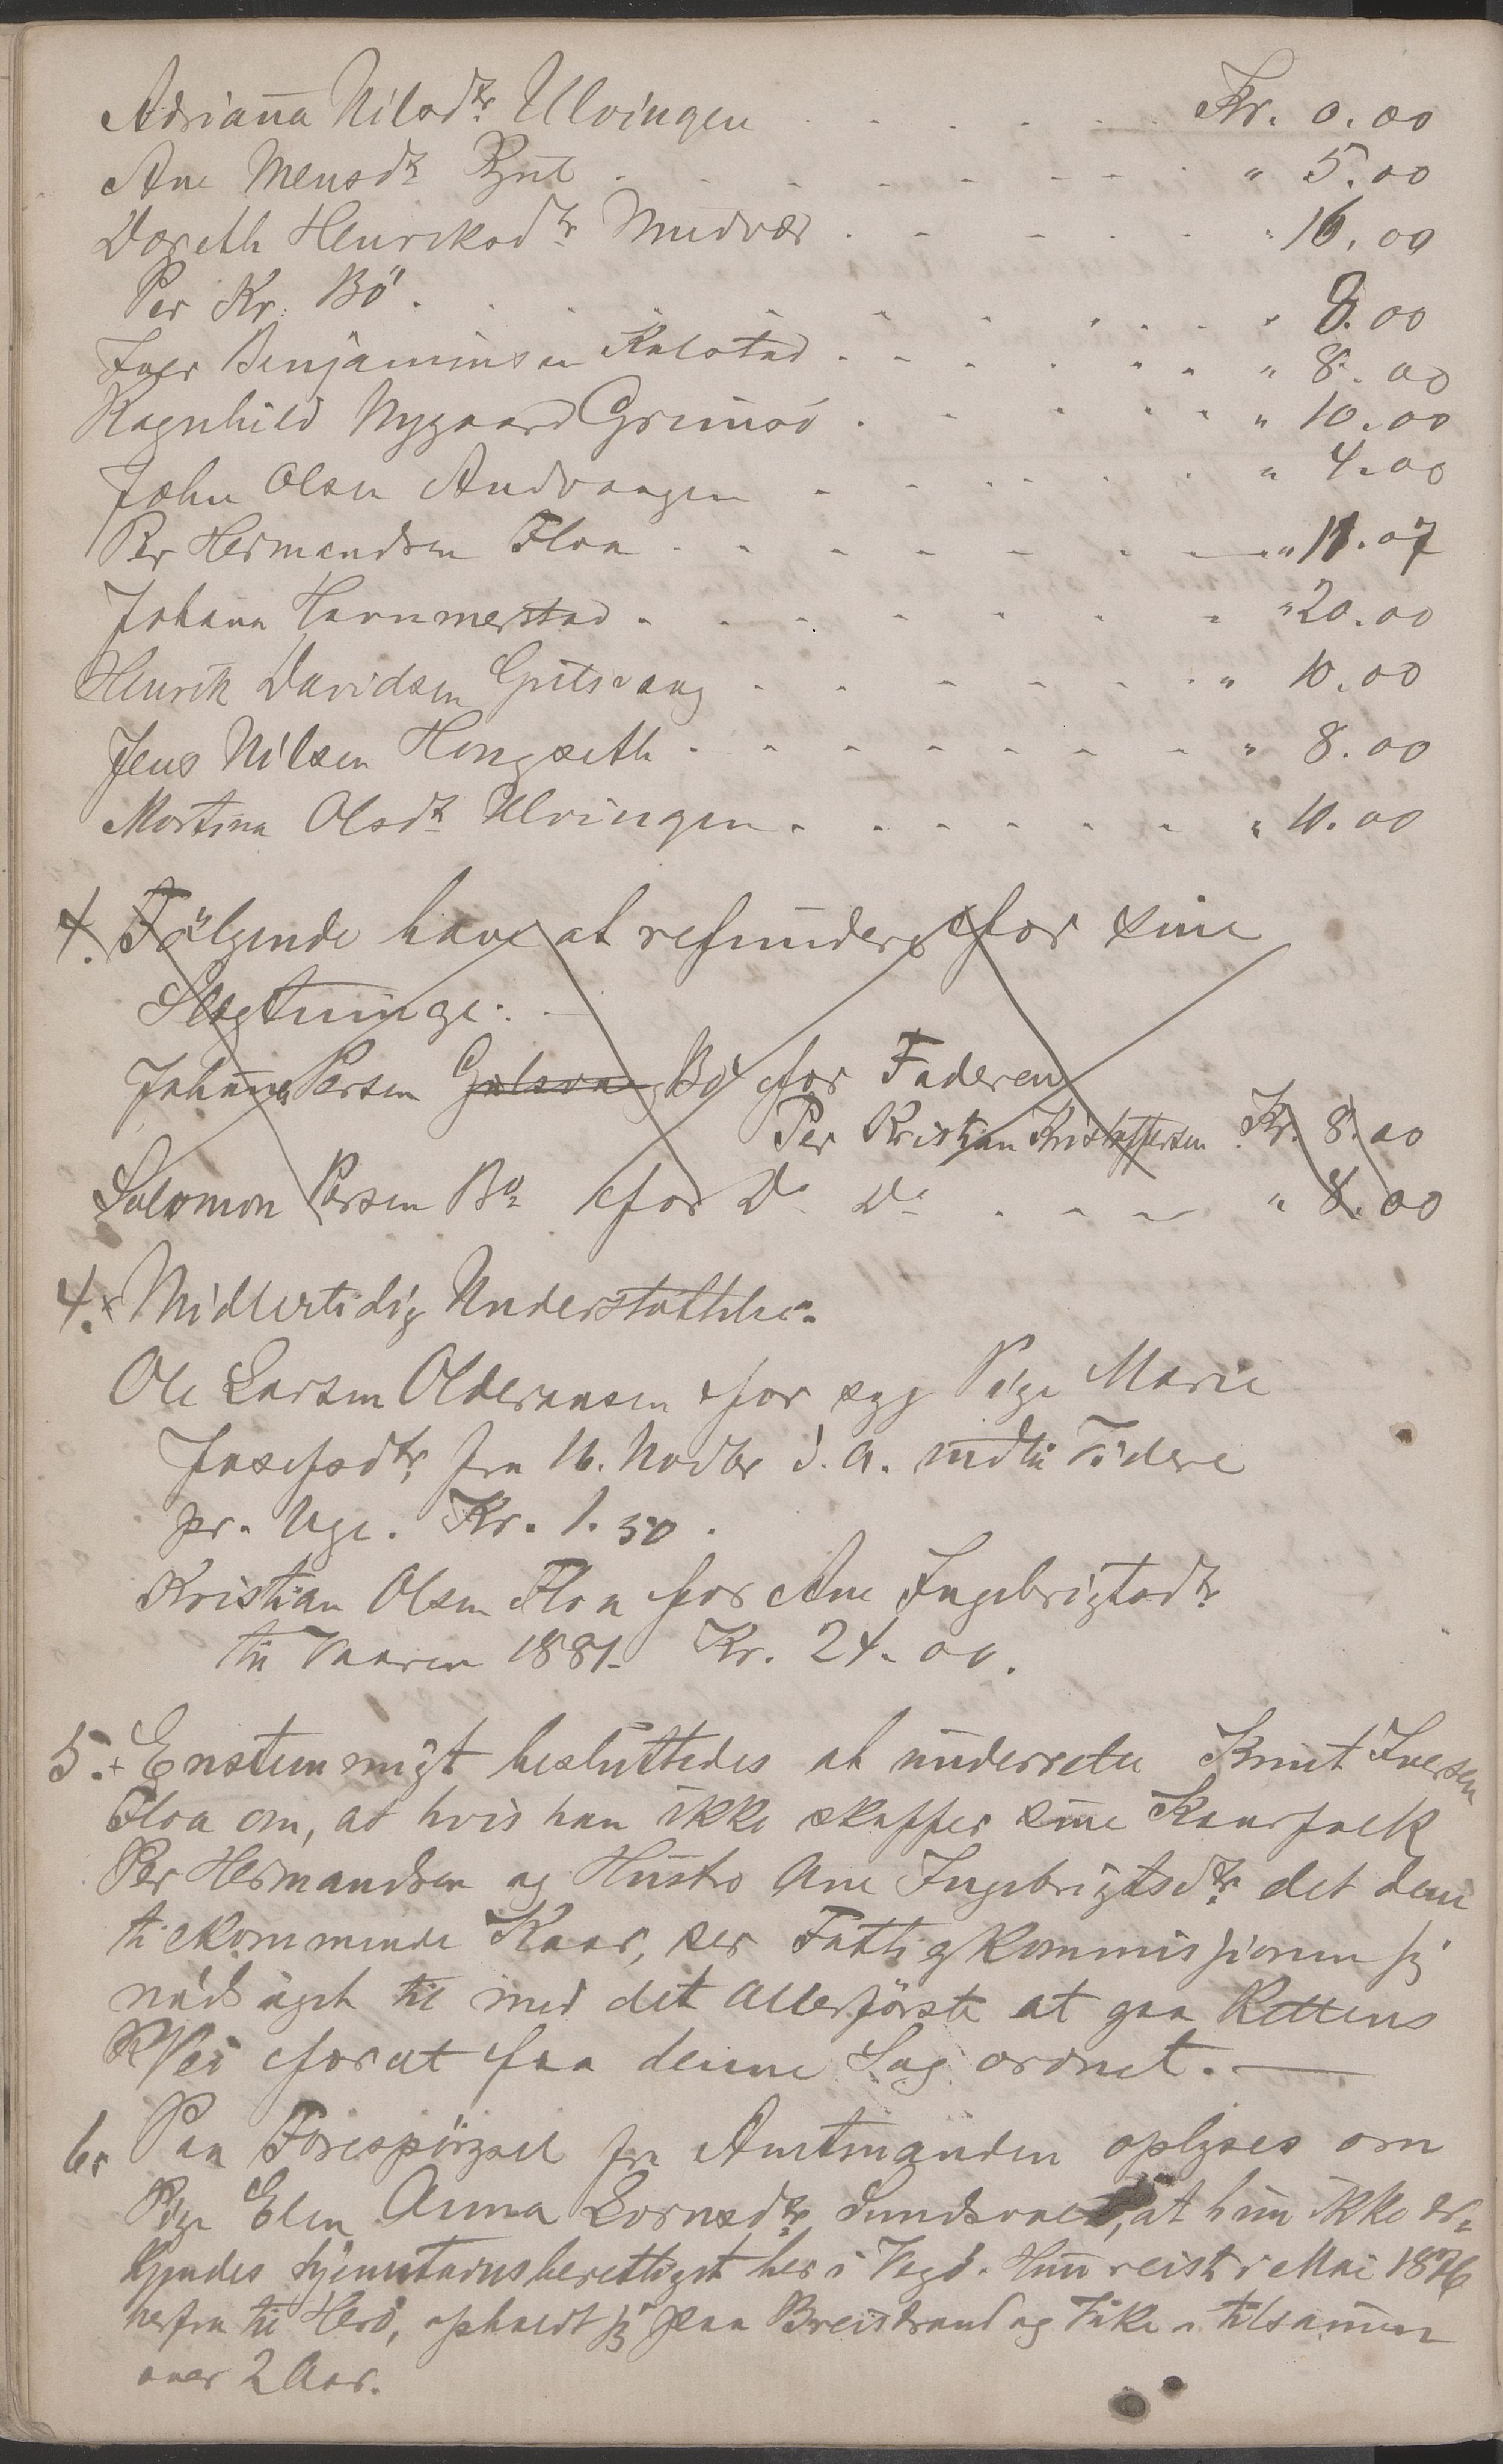 Adrianna Nilsdtr Ulvingen . . . . . Kr. 0.00
Ane Mensdtr Rynl . . . . . . . " 5.00
Doreth Henriksdtr Mudvær . . . . . " 16.00
Per Kr. Bö . . . . . . . . " 8.00
Iver Benjaminsen Kalstad . . . . . " 8.00
Ragnhild Nygaard Grimsö . . . . . " 10.00
John Olsen Andvaagen . . . . . . " 4.00
Per Hermandsen Floa . . . . . . . " 11.07
Johana Hammerstad . . . . . . . " 20.00
Henrik Davidsen Gulsvaag . . . . . . " 10.00
Jens Nilsen Hongseth . . . . . . . " 8.00
Martina Olsdtr Ulvingen . . . . . . " 10.00
4. Fölgende have at refundere for sine
Slægtninge:
Johannes Persen Gulsvaag Bö for Faderen
Per Kristian Kristoffersen Kr. 8.00
Salomon Persen Bö for Do Do . . . " 8.00
4. Midlertidig Understöttelse.
Ole Larsen Olderaasen for syg Pige Marie
Josefsdtr fra 16. Novbr d. A. indtil Videre
pr. Uge. Kr. 1.50.
Kristian Olsen Floa for Ane Ingebrigtsdtr
til Vaaren 1881. Kr. 24.00.
5. Enstemmigt besluttedes at underrette Knut Iversen
Floa om, at hvis han ikke skaffer sine Kaarfolk
Per Hermandsen og Hustro Ane Ingebrigtsdtr det dem
tilkommende Kaar, ser Fattigkommissionen sig
nödsaget til med det allerförste at gaa Rettens
Vei forat faa denne Sag ordnet.
6. Paa Forespörgsel fra Amtmanden oplyses om
Pige Elen Anna Lornsdtr Sundsvoll, at hun ikke er-
kjendes hjemstavnsberettiget her i Vegö. Hun reiste i Mai 1876
herfra til Herö, opholdt sig paa Breistrand og tilsammen
over 2 Aar.